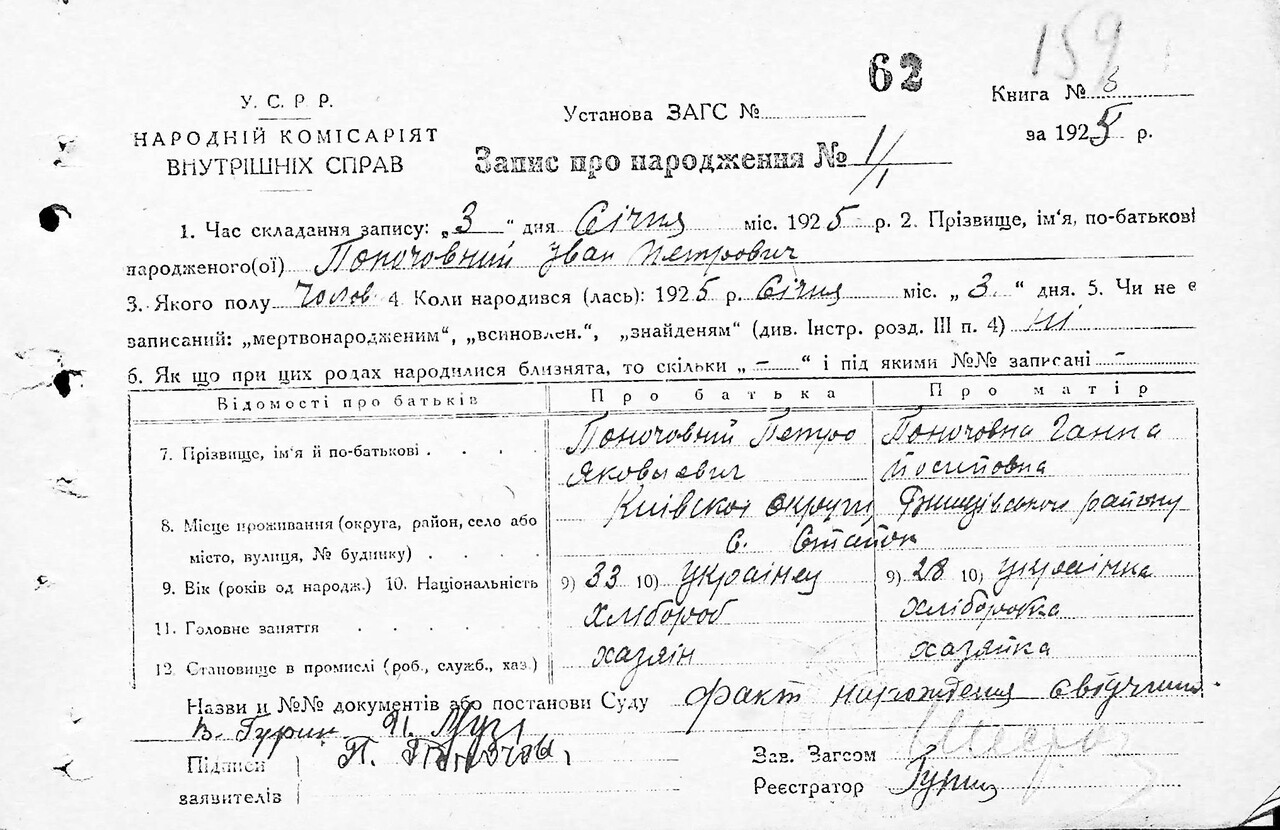 159
62
У. С. Р. Р.
НАРОДНІЙ КОМІСАРІЯТ
ВНУТРІШНІХ СПРАВ
Установа ЗАГС №
Книга №
за 1925 р.
Запис про народження № 1/1
1. Час складання запису: „3“ дня Січня міс. 1925 р. 2. Прізвище, ім'я, по-батькові
народженого(ої) Поночовний Іван Петрович
3. Якого полу чолов. 4. Коли народився (лась): 1925 р. Січня міс. „3.“ дня. 5. Чи не є
записаний: „мертвонародженим“, „всиновлен.“, „знайденям“ (див. Інстр. розд. III п. 4) Ні
6. Як що при цих родах народилися близнята, то скільки „-“ і під якими №№ записані -
Відомості про батьків Про батька Про матір
7. Прізвище, ім'я й по-батькові Поночовний Петро Поночовна Ганна
Йосиповна
8. Місце проживання (округа, район, село або Київскої округи району
місто, вулиця, № будинку) с.
9. Вік (років од народж.) 10. Національність 9) 33 10) Українец 9) 28 10) Українка
11. Головне заняття Хлібороб Хліборобка
12. Становище в промислі (роб., служб., хаз.) хазяін хазяйка
Назви и №№ документів або постанови Суду факт нарождения
В. Гурин
Підписи П.
заявителів
Зав. Загсом
Реєстратор